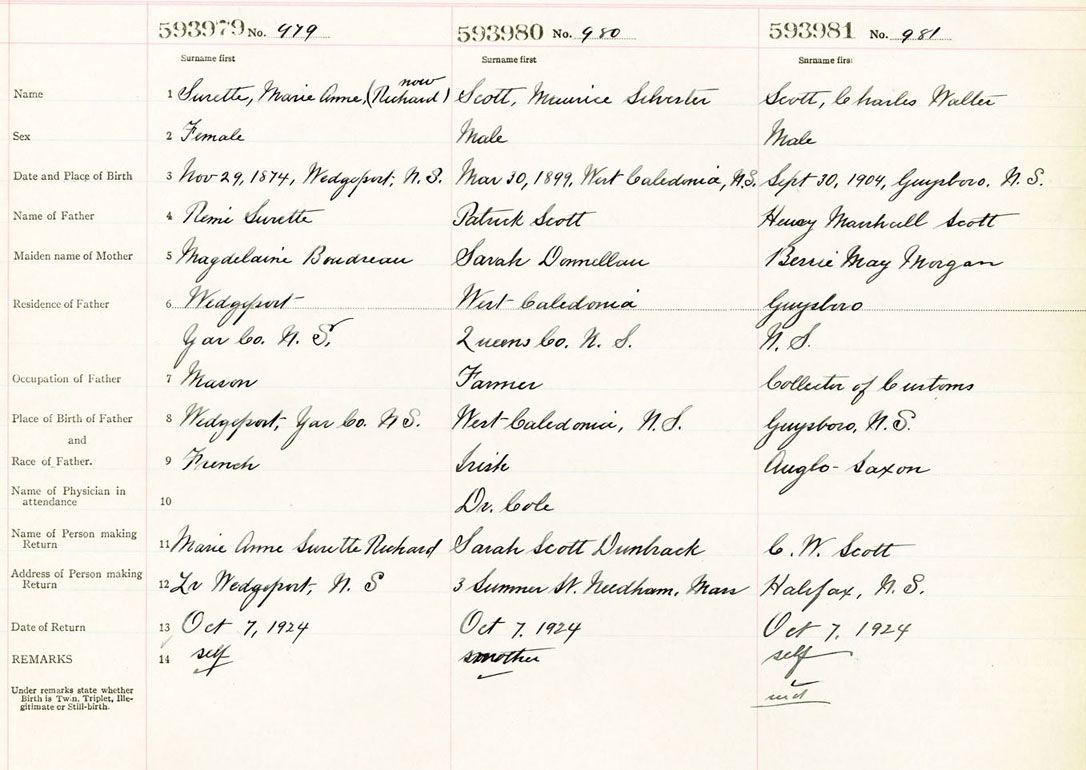 593979 No. 979 593980 No. 980 593981 No. 981
Surname first Surname first Surname first
now
Name 1 Surette, Marie Anne, (Richard) Scott, Maurice Silvester Scott, Charles Walter
Sex 2 Female Male Male
Date and Place of Birth 3 Nov 29, 1874, Wedgeport, N.S. Mar 30, 1899, West Caledonia, N.S. Sept 30, 1904, Guysboro. N.S.
Name of Father 4 Remi Surette Patrick Scott Henry Marshall Scott
Maiden name of Mother 5 Magdelaine Boudreau Sarah Donnellan Bessie May Morgan
Residence of Father 6 Wedgeport West Caledonia Guysboro
Yar Co. N.S. Queens Co. N.S. N.S.
Occupation of Father 7 Mason Farmer Collector of Customs
Place of Birth of Father 8 Wedgeport, Yar Co. NS. West Caledonia, N.S. Guysboro, N.S.
and
Race of Father. 9 French Irish Anglo-Saxon
Name of Physician in
attendance 10 Dr. Cole
Name of Person making
Return 11 Marie Anne Surette Richard Sarah Scott Dunbrack C. W. Scott
Address of Person making
Return 12 Lr Wedgeport, N.S 3 Sumner St. Needham, Mass Halifax, N.S.
Date of Return 13 Oct 7, 1924 Oct 7, 1924 Oct 7, 1924
REMARKS 14 self mother self
Under remarks state whether
Birth is Twin, Triplet, Ille-
gitimate or Still-birth.